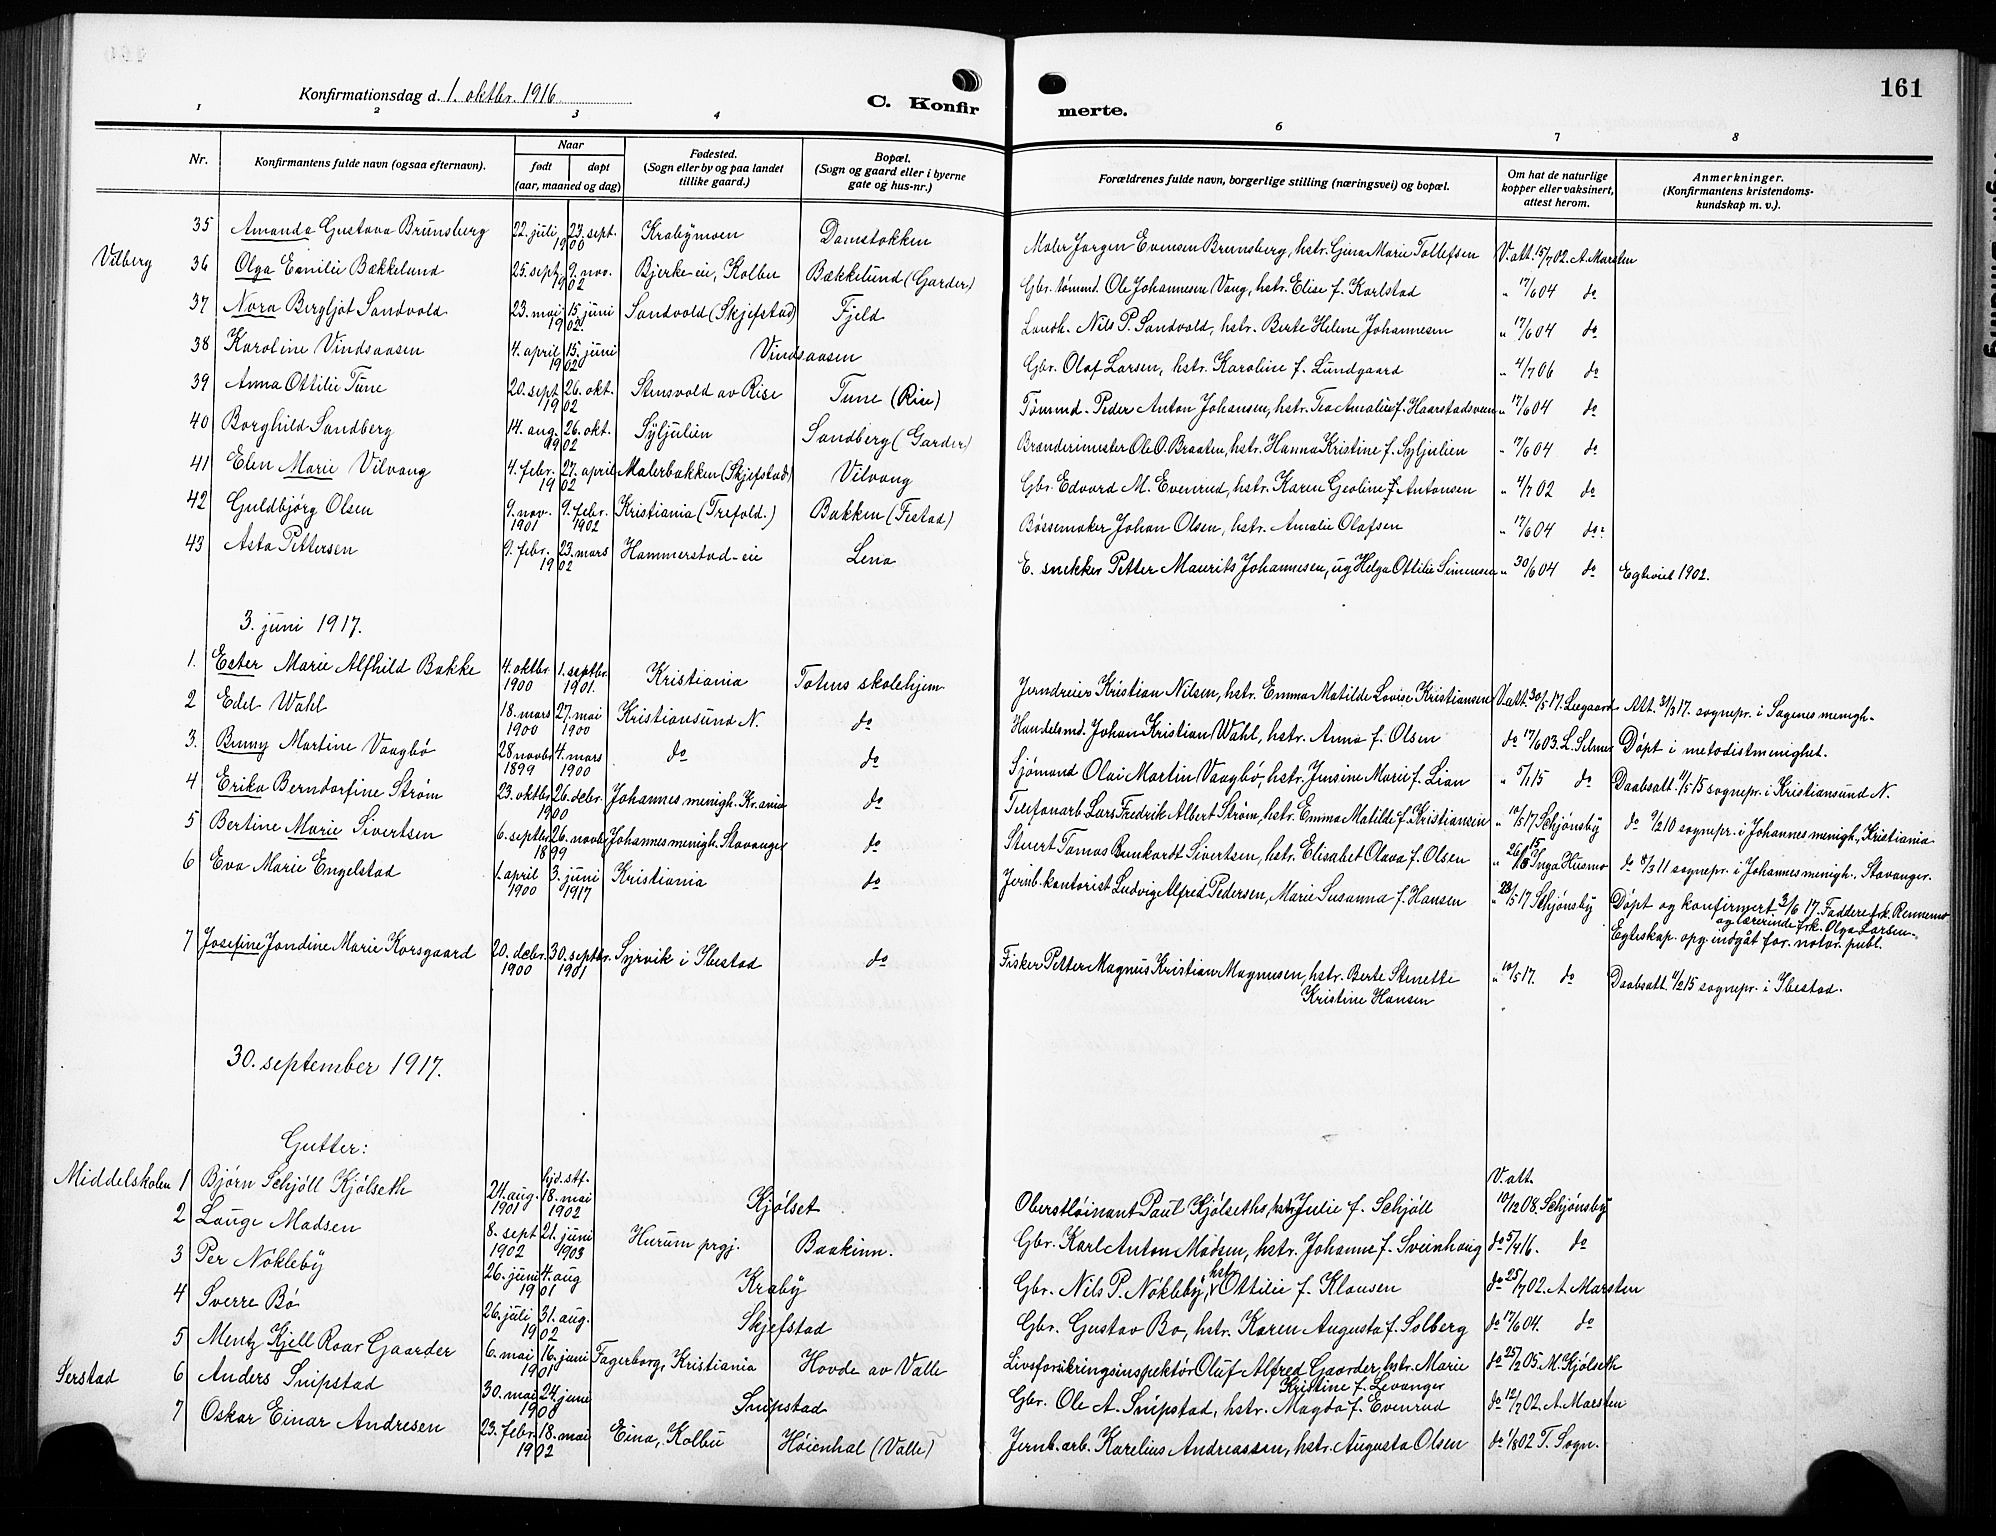 161
Konfirmationsdag d. 1. oktbr. 1916.
C. Konfirmerte.
1 2 3 4 6 7 8
Nr.
Konfirmantens fulde navn (ogsaa efternavn).
Naar
født døpt
(aar, maaned og dag)
Fødested.
(Sogn eller by og paa landet
tillike gaard.)
Bopæl.
(Sogn og gaard eller i byerne
gate og hus-nr.)
Forældrenes fulde navn, borgerlige stilling (næringsvei) og bopæl.
Om hat de naturlige
kopper eller vaksinert,
attest herom.
Anmerkninger.
(Konfirmantens kristendoms-
kundskap m. v.).
35 Amanda Gustava Brunsberg 22. juli 23. sept. 1900 Krabymoen Damstokken Maler Jørgen Evensen Brunsberg, hstr. Gina Marie Tollefsen V. att. 15/7 02. A. Marsten
Vilberg 36 Olga Emilie Bækkelund 25. sept. 9. nov. 1902 Bjerke-eie, Kolbu Bækkelund (Garder) Gbr. tømmd. Ole Johannesen Vang, hstr. Elise f. Karlstad " 17/6 04 do
37 Nora Bergljot Sandvold 23. mai 15. juni 1902 Sandvold (Skjefstad) Fjeld Landh. Nils P. Sandvold, hstr. Berte Helene Johannesen " 17/6 04 do
38 Karoline Vindsaasen 4. april 15. juni 1902 Vindsaasen Gbr. Olaf Larsen, hstr. Karoline f. Lundgaard " 4/7 06 do
39 Anna Ottilie Tune 20. sept. 26. okt. 1902 Stensvold av Rise Tune (Rise) Tømmd. Peder Anton Johansen, hstr. Tea Amalie f. Haarstadsveen " 17/6 04 do
40 Borghild Sandberg 14. aug. 26. okt. 1902 Syljulien Sandberg (Garder) Brænderimester Ole O. Braaten, hstr. Hanna Kristine f. Syljulien " 17/6 04 do
41 Elen Marie Vilvang 4. febr. 27. april 1902 Malerbakken (Skjefstad) Vilvang Gbr. Edvard M. Evenrud, hstr. Karen Geoline f. Antonsen " 4/7 02 do
42 Guldbjørg Olsen 9. nov. 1901 9. febr. 1902 Kristiania (Trefold.) Bakken (Festad) Bøssemaker Johan Olsen, hstr. Amalie Olafsen " 17/6 04 do
43 Asta Pettersen 9. febr. 23. mars 1902 Hammerstad-eie Lena E. snekker Petter Maurits Johannesen, ug Helga Ottilie Simensen " 30/6 04 do Egteviet 1902.
3. juni 1917.
1. Ester Marie Alfhild Bakke 4. oktbr. 1900 1. septbr. 1901. Kristiania Totens skolehjem Jerndreier Kristian Nilsen, hstr. Emma Matilde Lovise Kristiansen V. att. 30/5 17. Leegaard Att. 31/3 17. sognepr. i Sagenes menigh.
2 Edel Wahl 18. mars 1900 27. mai 1900 Kristiansund N. do Handelsmd. Johan Kristian Wahl, hstr. Anna f. Olsen do 17/6 03. L. Selmer Døpt i metodistmenighet.
3. Bunny Martine Vaagbø 28 novbr 1899 4. mars 1900 do do Sjømand Olai Martin Vaagbø, hstr. Jensine Marie f. Lian " 5/1 15 do Daabsatt. 11/5 15 sognepr. i Kristiansund N.
4 Erika Berndorfine Strøm 23. oktbr. 26. debr. 1900 Johannes menigh. Kr.ania do Telefonarb. Lars Fredrik Albert Strøm, hstr. Emma Matilde f. Kristiansen " 10/5 17 Schjønsby do 1/2 10 sognepr. i Johannes menigh., Kristiania
5 Bertine Marie Sivertsen 6. septbr. 26. novbr. 1899 Johannes menigh. Stavanger do Stuert Tomas Bernhardt Sivertsen, hstr. Elisabet Olava f. Olsen Inga Husmo do 8/3 11 sognepr. i Johannes menigh. Stavanger.
6 Eva Marie Engelstad 1. april 1900 3. juni 1917 Kristiania do Jernb. kontorist Ludvig Alfred Pedersen, Marie Susanna f. Hansen " 23/5 17 Schjønsby Døpt og konfirmert 3/6 17. Faddere frk. Rennemo
og lærerinde frk. Olga Larsen.
Egteskap opg. indgåt for notar. publ.
7 Josefine Jondine Marie Korsgaard 20. debr. 1900 30. septbr. 1901 Syrvik i Ibestad do Fisker Petter Magnus Kristian Magnussen, hstr. Berte Stenette
Kristine Hansen " 10/5 17. do Daabsatt. 11/2 15 sognepr. i Ibestad.
30. september 1917.
Gutter:
Middelskolen 1 Bjørn Schjøll Kjølseth 24. aug. 1901 hjd. stf. 18. mai 1902 Kjølset Oberstløinant Paul Kjølseth, hstr Julie f. Schjøll V. att. 10/12 08. Schjønsby
2 Lauge Madsen 8. sept 1902 21. juni 1903 Hurum prgj. Baakinn. Gbr. Karl Anton Madsen, hstr. Johanne f. Sveinhaug do 5/4 16. do
3 Per Nøkleby 26. juni 4. aug 1901 Kraby Gbr. Nils P. Nøkleby, hstr. Ottilie f. Klausen do 25/7 02. A. Marsten
4 Sverre Bø 26. juli 31. aug. 1902 Skjefstad Gbr. Gustav Bø, hstr. Karen Augusta f. Solberg do 17/6 04. do
5 Mentz Kjell Roar Gaarder 6. mai 16. juni 1901 Fagerborg, Kristiania Hovde av Valle Livsforsikringsinspektør Oluf Alfred Gaarder, hstr. Marie
Kristine f. Levanger do 25/2 05. M. Kjølseth
Serstad 6 Anders Snipstad 30. mai 24. juni 1900 Snipstad Gbr. Ole A. Snipstad, hstr. Magda f. Evenrud do 12/7 02. A. Marsten
7 Oskar Einar Andresen 23. febr. 18. mai 1902 Eina, Kolbu Høienhal (Valle) Jernb. arb. Karelius Andreassen, hstr. Augusta Olsen do 1/8 02 T. Sogn.